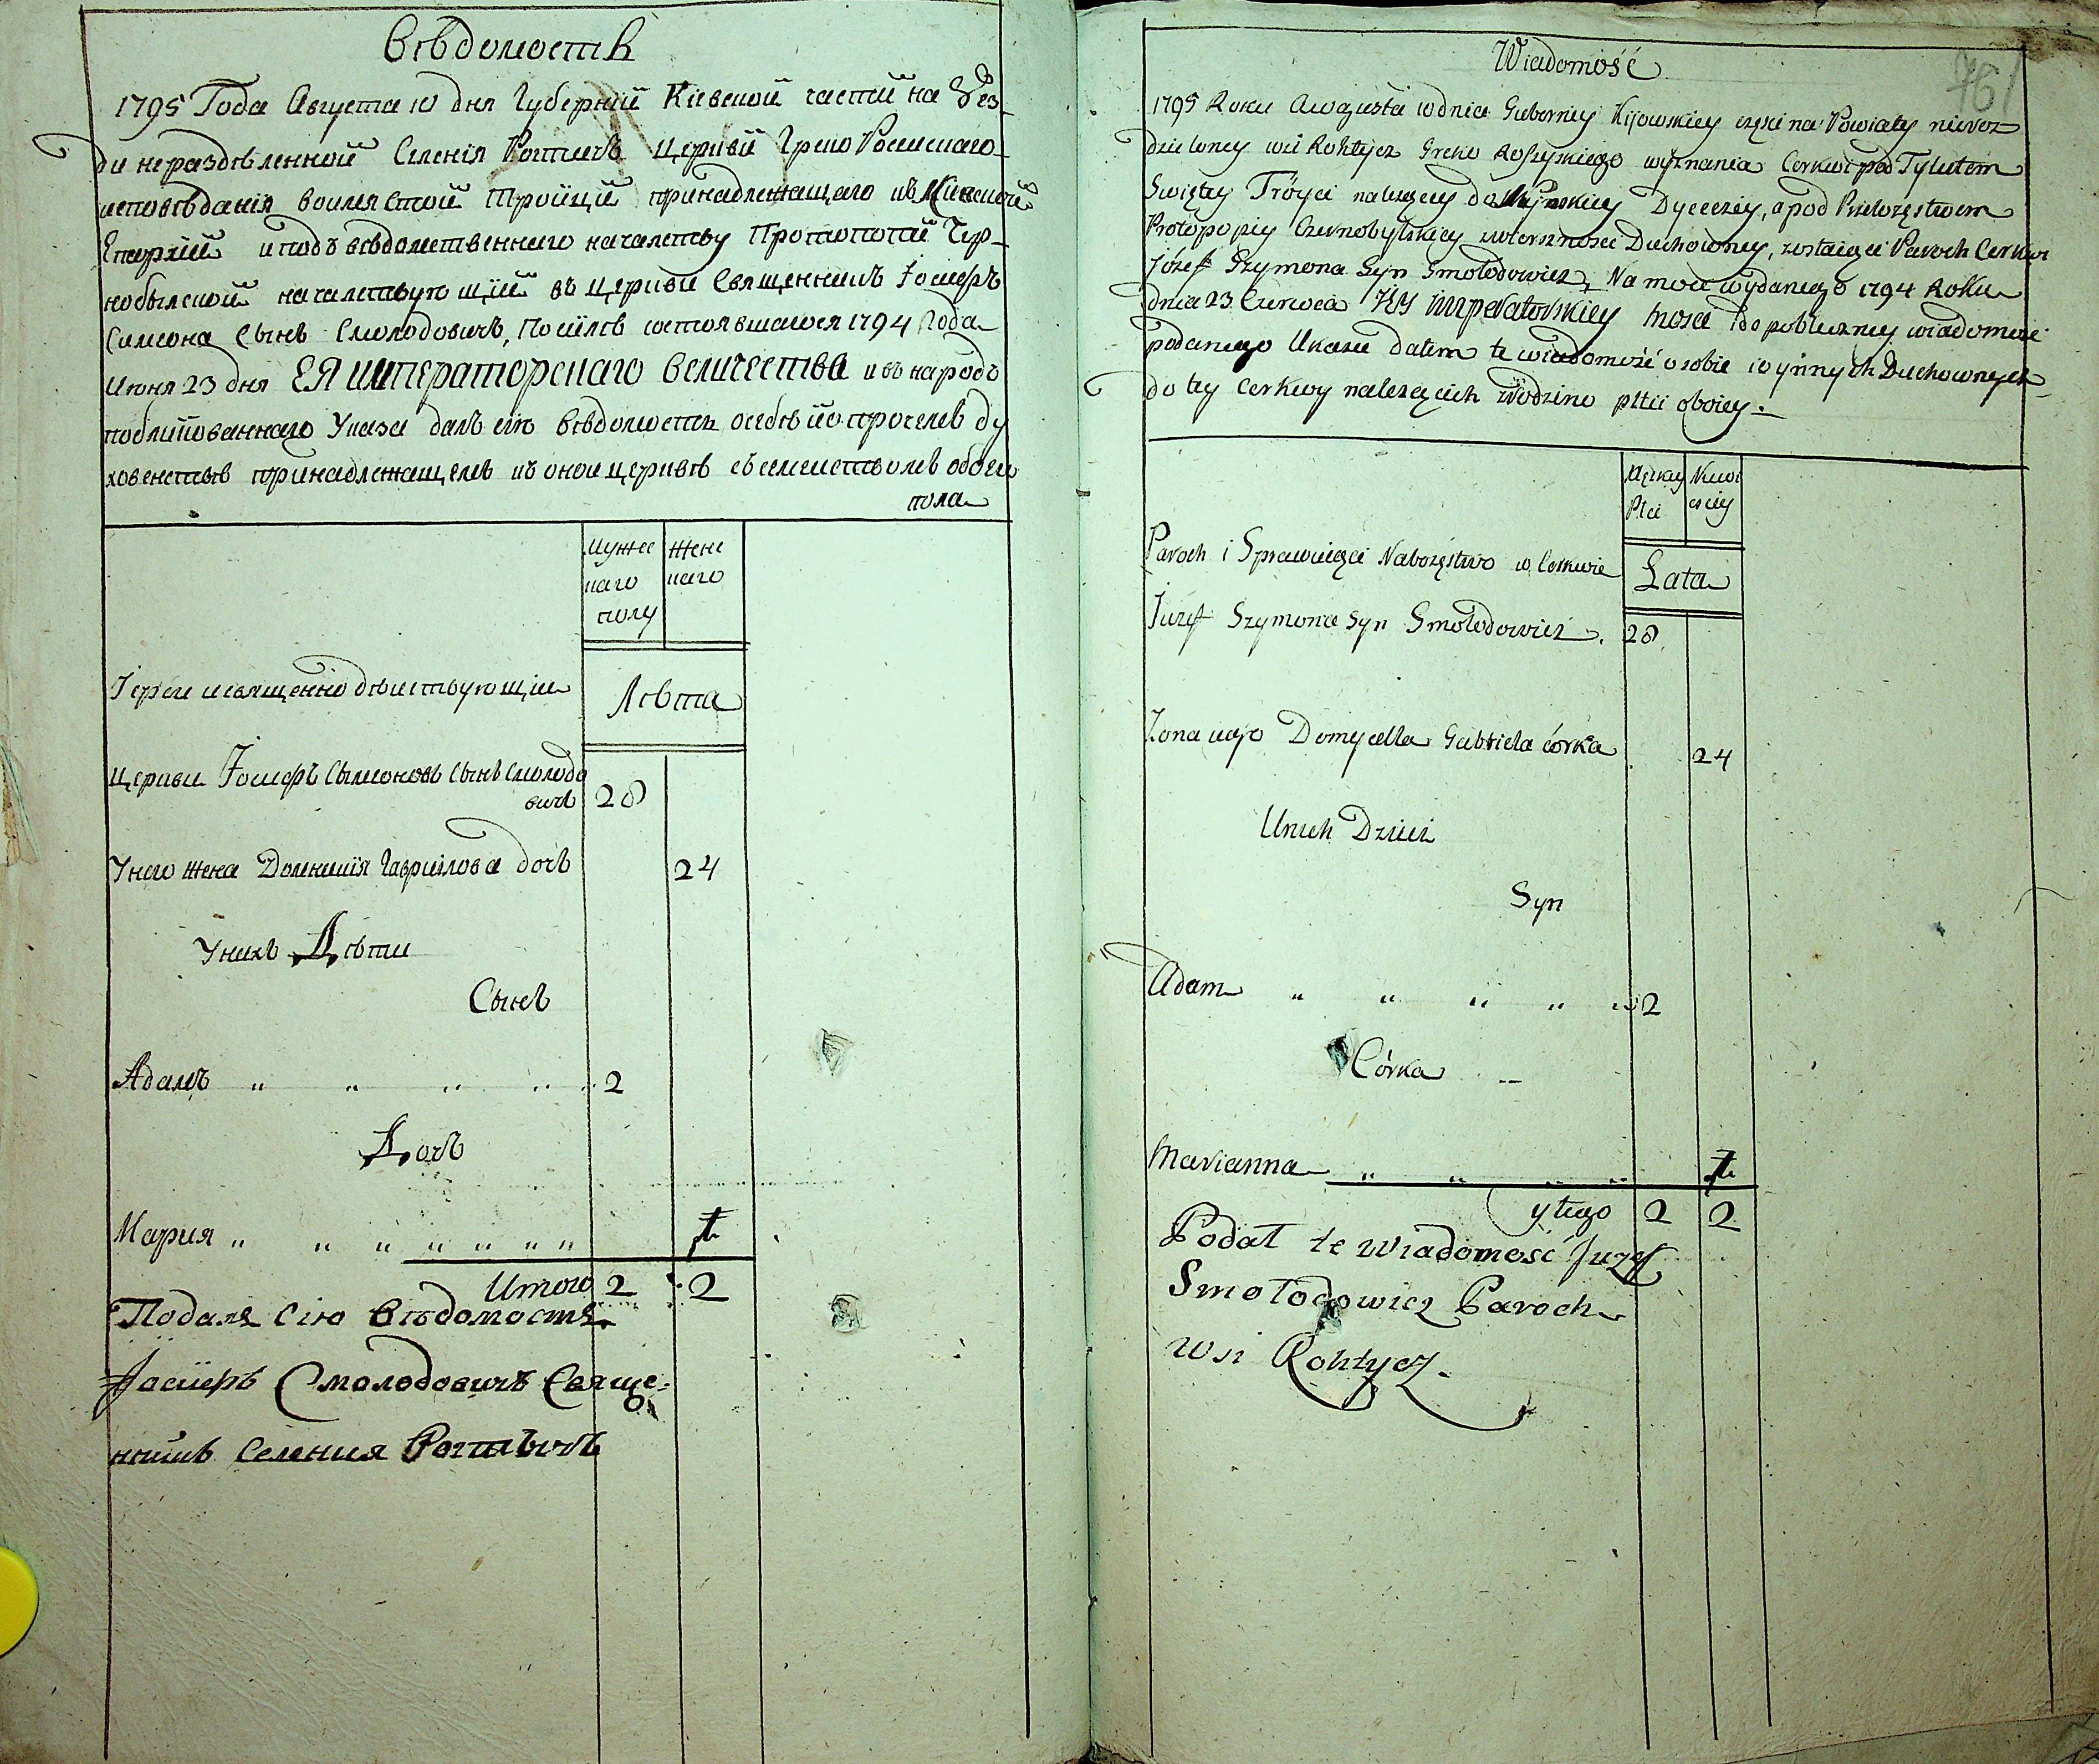 Вѣдомость
1795 Года Августа 10 дня Губернїи Кіевской части на Уез-
ди нераздѣленной Селенія Рогтичъ церкви Греко Россискаго
исповѣданія во имя Стой Тройци принадлежащаго къ Киевской
Епархїи и подъ вѣдомственнаго началству Протопопїи Чер-
нобылской началствующїй въ церкви Священникъ Іосифъ
Симеона Сынъ Смолодовичъ, По силѣ состоявшагося 1794 Года
Июня 23 дня ЕЯ императорскаго величества и въ народъ
публикованнаго Указа далъ сию вѣдомость о себѣ и о протчемъ ду
ховенствѣ принадлежащемъ къ оной церквѣ съ семействомъ обоего
пола
Мужес
каго
полу
Женс
каго
Іереи и священно дѣиствующіи
Лѣта
церкви Іосифъ Сымоновъ Сынъ Смолодо
вичъ 28
У него жена Домникия Гаврилова дочь 24
У нихъ Дѣти
Сынъ
Адамъ " " " " " 2
Дочь
Мария " " " " " " " 1/2
Итого 2 2
Подалъ Сію Вѣдомость
Іосифъ Смолодовичъ Свяще-
нникъ Селения Рогтычъ
Wiadomość
761
1795 Roku Augusta 10 dnia Guberniy Kijowskiey części na Powiaty nieroz
dzieloney wsi Rohtycz Greko Rossyskiego wyznania Cerkwi pod Tytułem
Swiętey Tróyci należącey do Kijowskiey Dyecezÿ, a pod Zwierzęstwem
Protopopiy Czernobylskiey zwierznosci Duchowney, zostaiący Paroch Cerkwi
Józef Szymona Syn Smołodowicz, Na mocy wydanego 1794 Roku
dnia 23 Czerwca Jey Imperatorskiey Mosci i do publiczney wiadomosci
podanego Ukazu dałem te wiadomość o sobie i o ynnych Duchownych
do tey Cerkwy należących z Rodzino płtci oboiey.
Męzkiey
Płci
Niewi
esciey
Paroch i Sprawuiący Nabożęstwo w Cerkwie
Łata
Juzef Szymona Syn Smołodowicz. 28.
Żona iego Domycella Gabriela córka 24
U nich Dzieci
Syn
Adam " " " " " 2
Córka
Marianna " " " " 1/2
ytego 2 2
Podał te Wiadomość Juzef
Smołodowicz Paroch
Wsi Rohtycz.